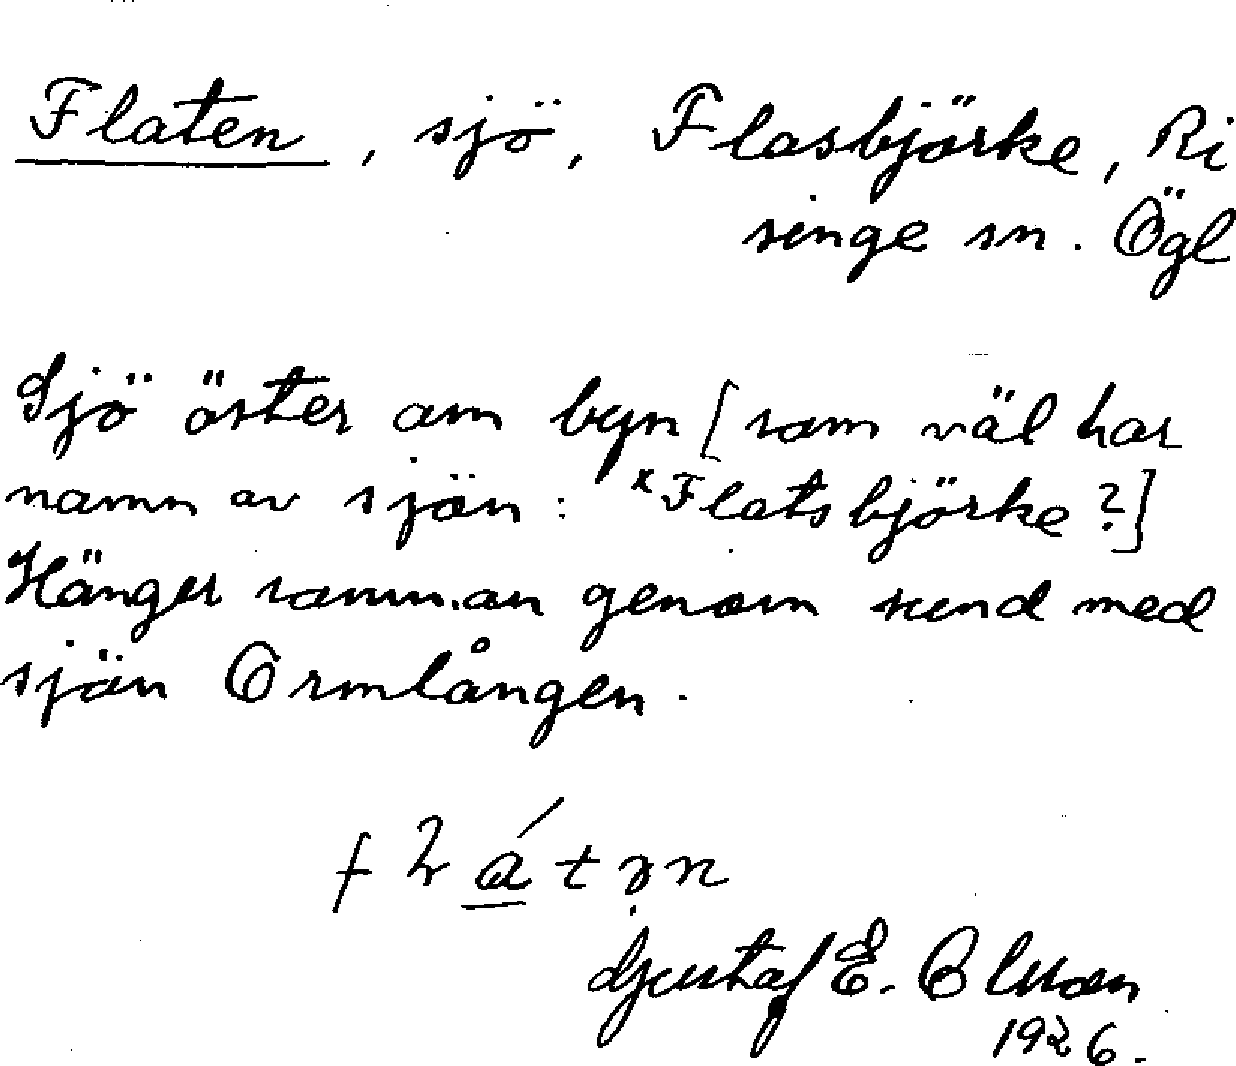 Flaten, sjö, Flasbjörke, Ri
singe sn. Ögl
Sjö öster om byn [som väl har
namn av sjön: ˣFlatsbjörke?]
Hänger samman genom sund med
sjön Ormlången.
Gustaf E. Olson
1926.